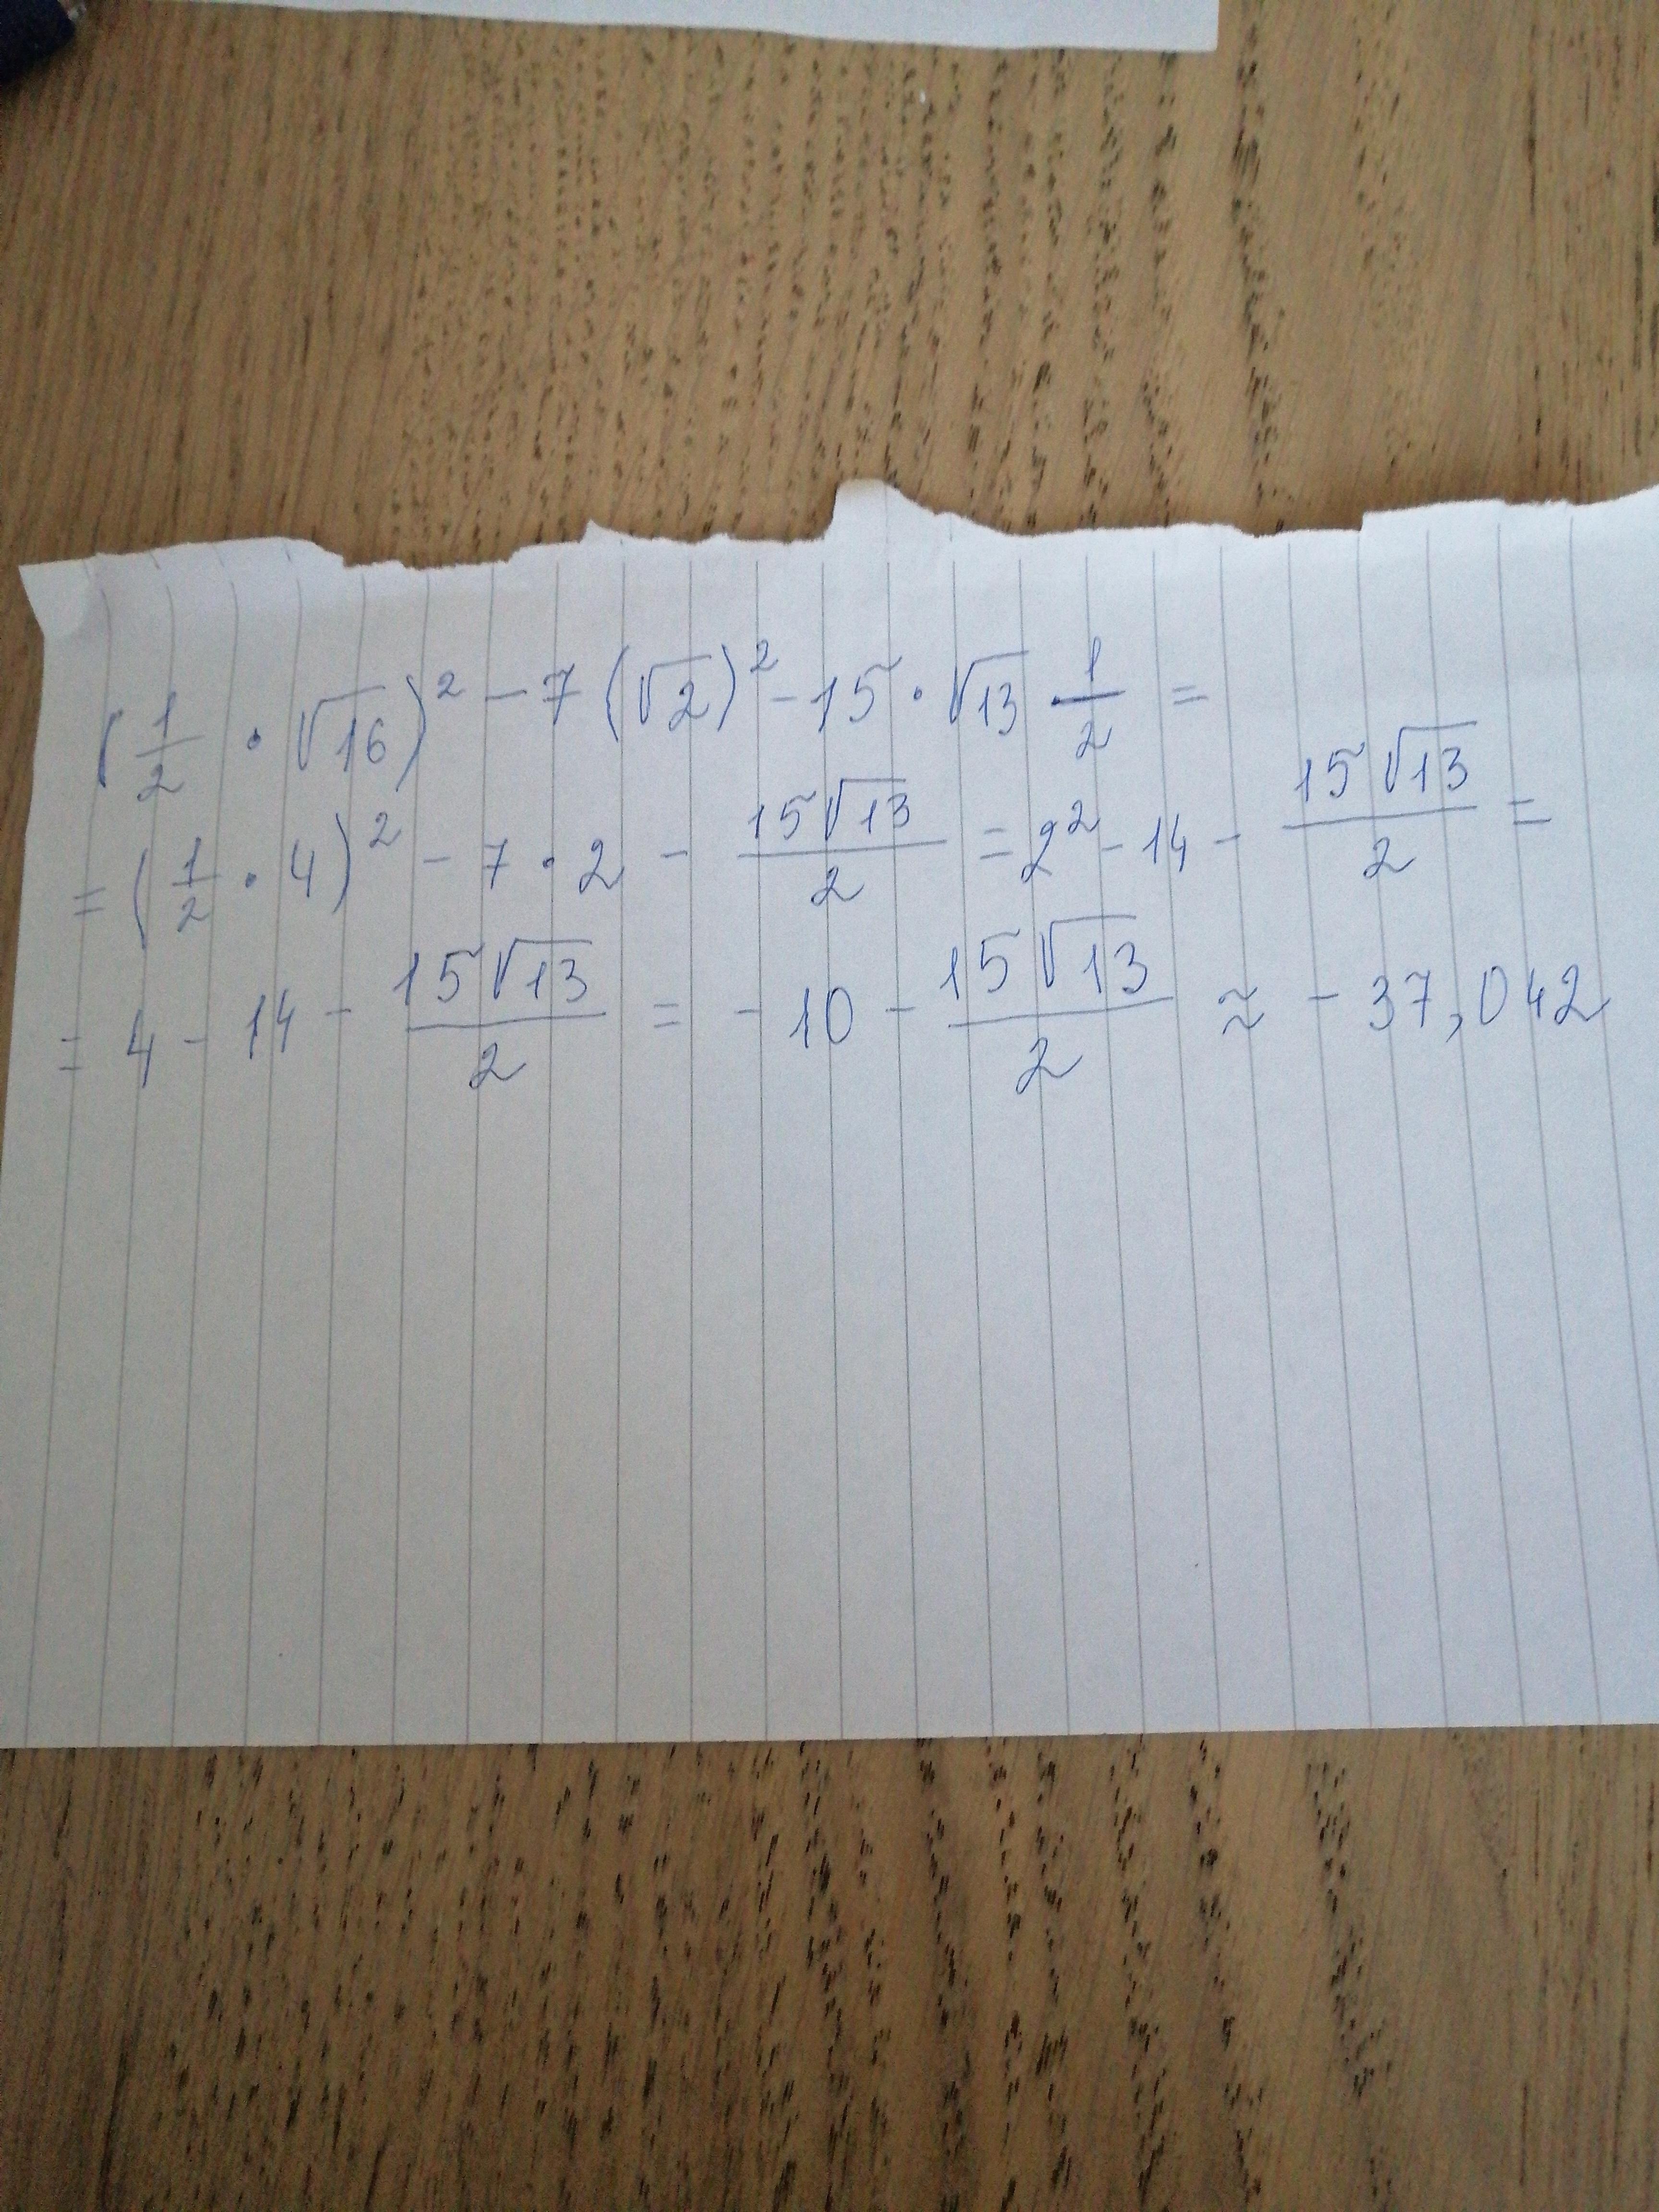 (1/2 · √16)² - 7(√2)² - 15 · √13 · 1/2 =
= (1/2 · 4)² - 7 · 2 - 15√13/2 = 2² - 14 - 15√13/2 =
= 4 - 14 - 15√13/2 = - 10 - 15√13/2 ≈ - 37,042